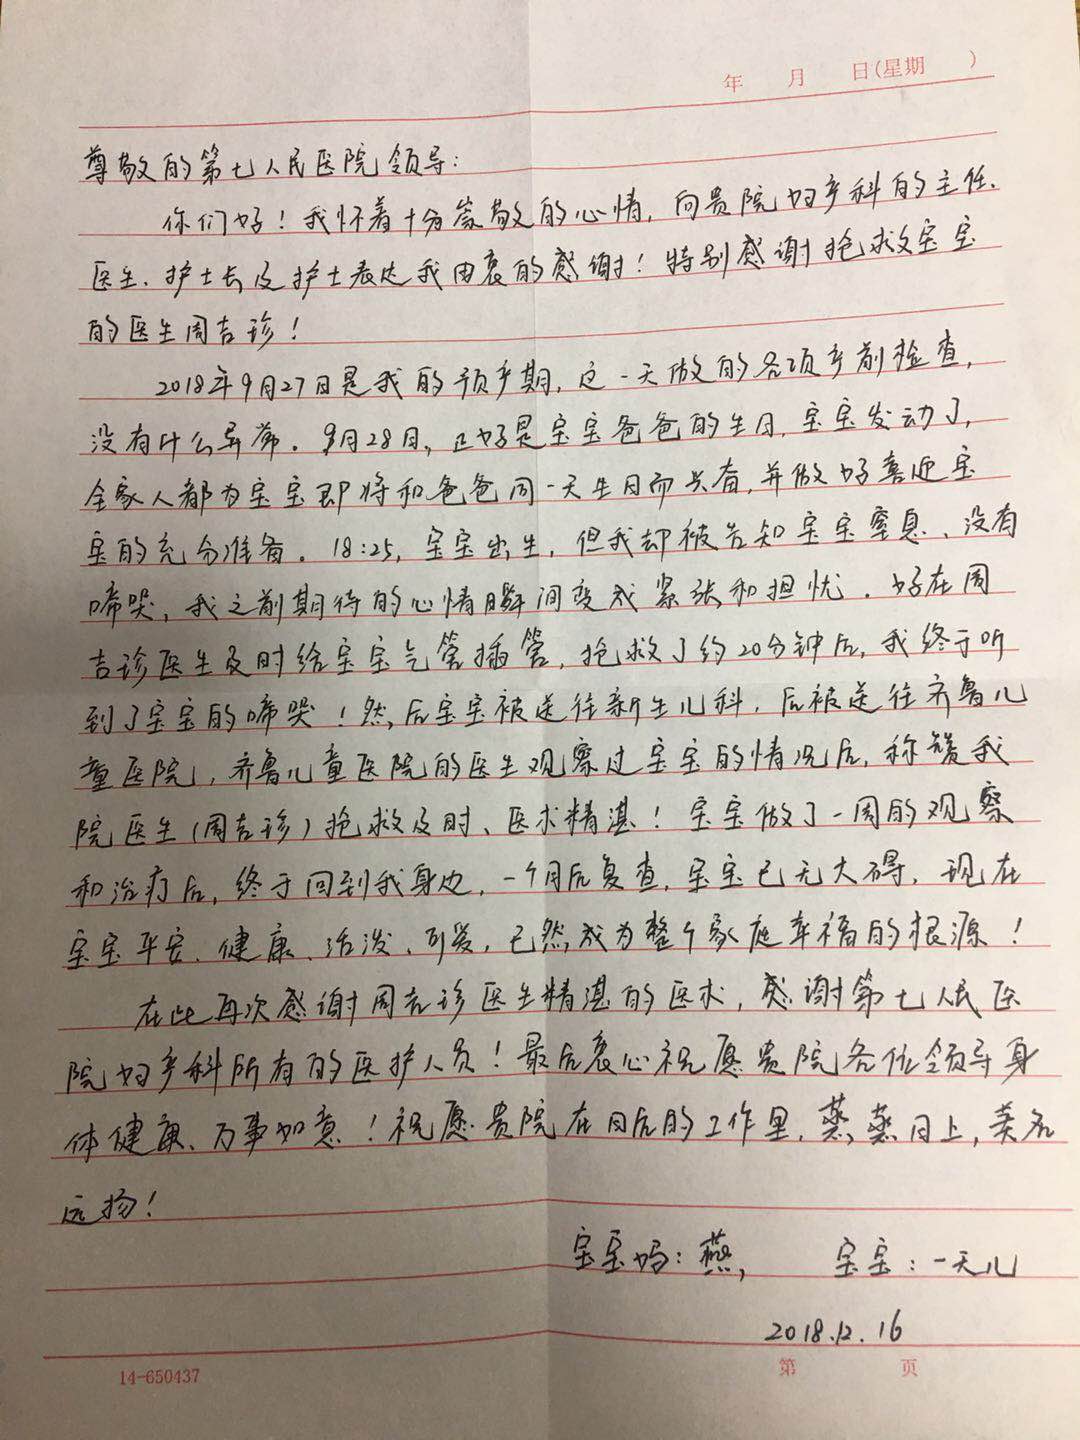 年 月 日(星期 )
尊敬的第七人民医院领导:
你们好!我怀着十分崇敬的心情,向贵院妇产科的主任、
医生、护士长及护士表达我由衷的感谢!特别感谢抢救宝宝
的医生周吉珍!
2018年9月27日是我的预产期,这一天做的各项产前检查,
没有什么异常。9月28日,正好是宝宝爸爸的生日,宝宝发动了,
全家人都为宝宝即将和爸爸同一天生日而兴奋,并做好喜迎宝
宝的充分准备。18:25,宝宝出生,但我却被告知宝宝窒息、没有
啼哭,我之前期待的心情瞬间变成紧张和担忧。好在周
吉珍医生及时给宝宝气管插管,抢救了约20分钟后,我终于听
到了宝宝的啼哭!然后宝宝被送往新生儿科,后被送往齐鲁儿
童医院,齐鲁儿童医院的医生观察过宝宝的情况后,称赞我
院医生(周吉珍)抢救及时、医术精湛!宝宝做了一周的观察
和治疗后,终于回到我身边,一个月后复查,宝宝已无大碍,现在
宝宝平安、健康、活泼、可爱,已然成为整个家庭幸福的根源!
在此再次感谢周吉珍医生精湛的医术,感谢第七人民医
院妇产科所有的医护人员!最后衷心祝愿贵院各位领导身
体健康、万事如意!祝愿贵院在日后的工作里,蒸蒸日上,美名
远扬!
宝宝妈:燕, 宝宝:一天儿
2018.12.16
14-650437 第 页